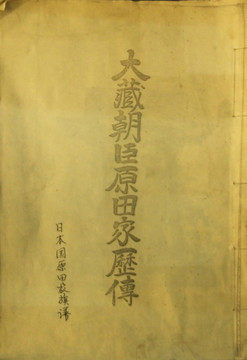 大藏朝臣原田家歷傳
日本国原田氏族譜